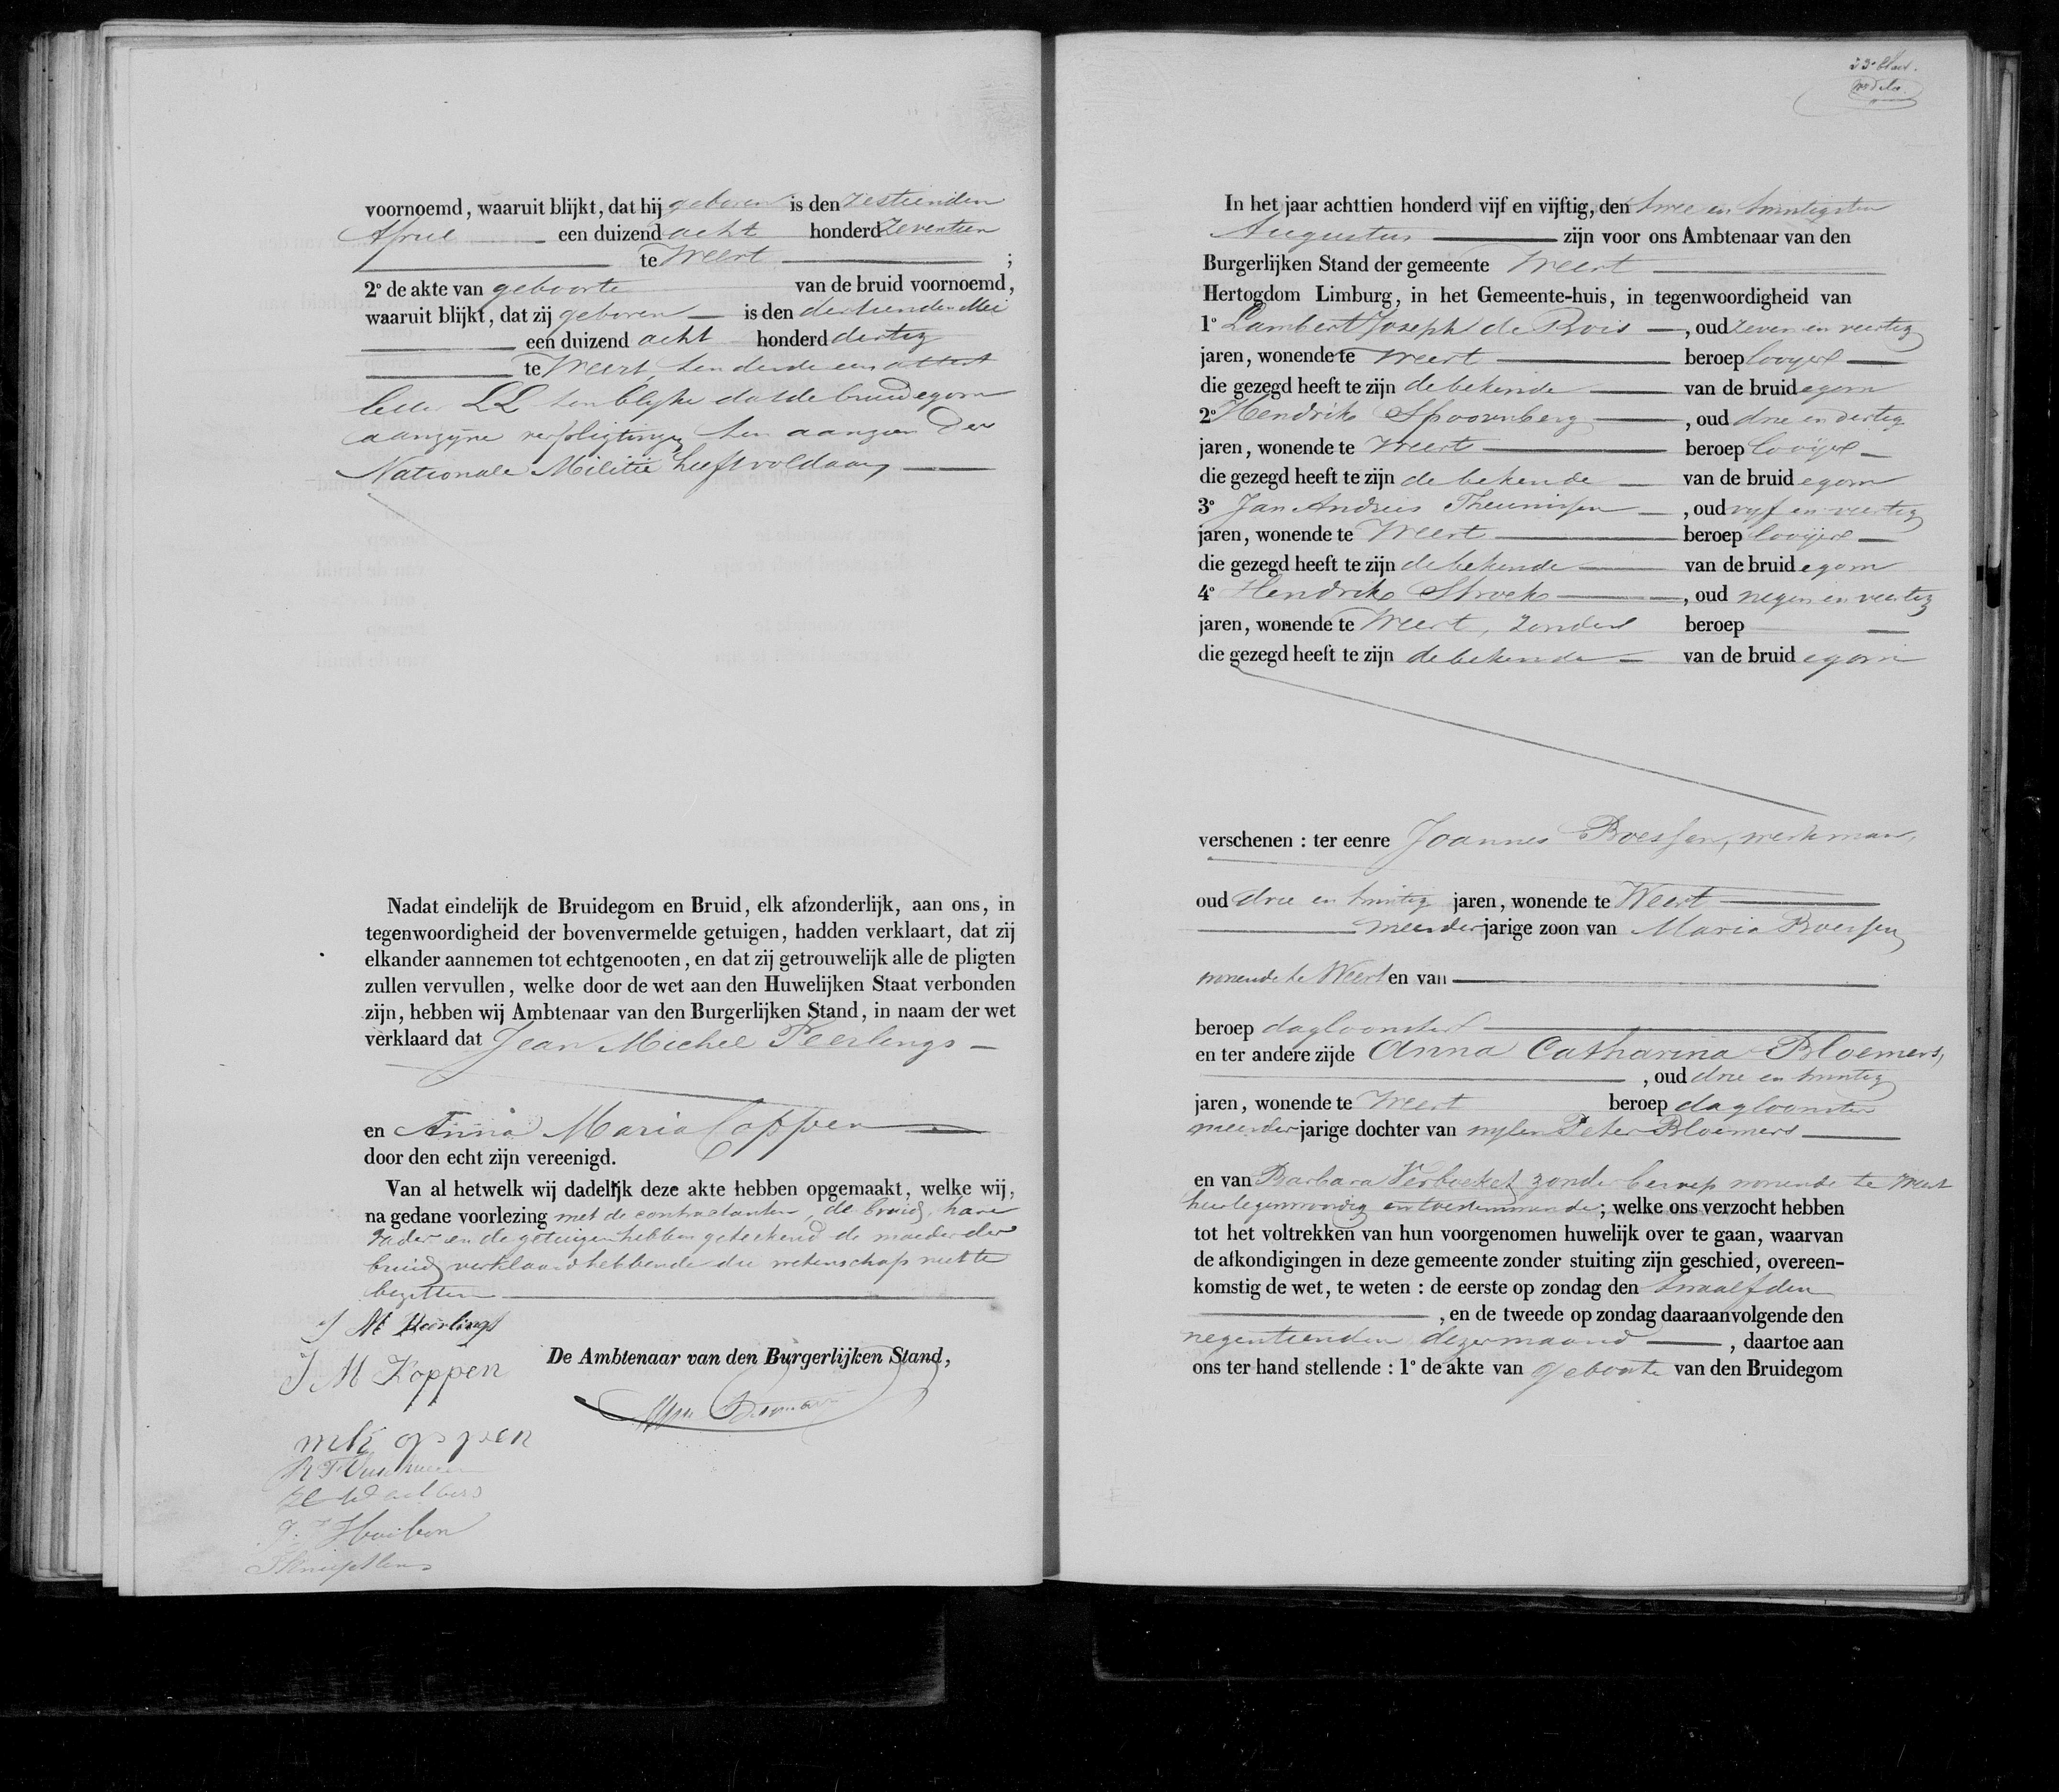 voornoemd, waaruit blijkt, dat hij geboren is den Zestienden
April een duizend acht honderd Zeventien
te Weert ;
2° de akte van geboorte van de bruid voornoemd,
waaruit blijkt, dat zij geboren is den dertienden Mei
een duizend acht honderd dertig
te Weert, ten derde een attest
letter LL ten blyke dat de bruidegom
aan zyne verpligtingen ten aanzien der
Nationale Militie heeft voldaan
Nadat eindelijk de Bruidegom en Bruid, elk afzonderlijk, aan ons, in
tegenwoordigheid der bovenvermelde getuigen, hadden verklaart, dat zij
elkander aannemen tot echtgenooten, en dat zij getrouwelijk alle de pligten
zullen vervullen, welke door de wet aan den Huwelijken Staat verbonden
zijn, hebben wij Ambtenaar van den Burgerlijken Stand, in naam der wet
verklaard dat Jean Michel Peerlings
en Anna Maria Coppen
door den echt zijn vereenigd.
Van al hetwelk wij dadelijk deze akte hebben opgemaakt, welke wij,
na gedane voorlezing met de contractanten, de bruids hare
Vader en de getuigen hebben geteekend de moeder der
bruid verklaard hebbende die wetenschap niet te
bezitten
J M Peerlings
J M Koppen
De Ambtenaar van den Burgerlijken Stand,
J. Hoeben
33e blad.
In het jaar achttien honderd vijf en vijftig, den twee en twintigsten
Augustus zijn voor ons Ambtenaar van den
Burgerlijken Stand der gemeente Weert
Hertogdom Limburg, in het Gemeente-huis, in tegenwoordigheid van
1° Lambert Joseph de Bois , oud zeven en veertig
jaren, wonende te Weert beroep looyer
die gezegd heeft te zijn de bekende van de bruidegom
2° Hendrik Spoorenberg , oud drie en dertig
jaren, wonende te Weert beroep looyer
die gezegd heeft te zijn de bekende van de bruidegom
3° Jan Andries Theunissen , oud vyf en veertig
jaren, wonende te Weert beroep looyer
die gezegd heeft te zijn de bekende van de bruidegom
4° Hendrik Stroek , oud negen en veertig
jaren, wonende te Weert, zonder beroep
die gezegd heeft te zijn de bekende van de bruidegom
verschenen : ter eenre Joannes Boessen, werkman,
oud drie en twintig jaren, wonende te Weert
meerderjarige zoon van Maria Boessen
wonende te Weert en van
beroep dagloonster
en ter andere zijde Anna Catharina Bloemers,
, oud drie en twintig
jaren, wonende te Weert beroep dagloonster
meerderjarige dochter van wylen Peter Bloemers
en van Barbara Verboeket zonder beroep wonende te Weert
hier tegenwoordig en toestemmende ; welke ons verzocht hebben
tot het voltrekken van hun voorgenomen huwelijk over te gaan, waarvan
de afkondigingen in deze gemeente zonder stuiting zijn geschied, overeen-
komstig de wet, te weten : de eerste op zondag den twaalfden
, en de tweede op zondag daaraanvolgende den
negentienden dezer maand , daartoe aan
ons ter hand stellende : 1° de akte van geboorte van den Bruidegom